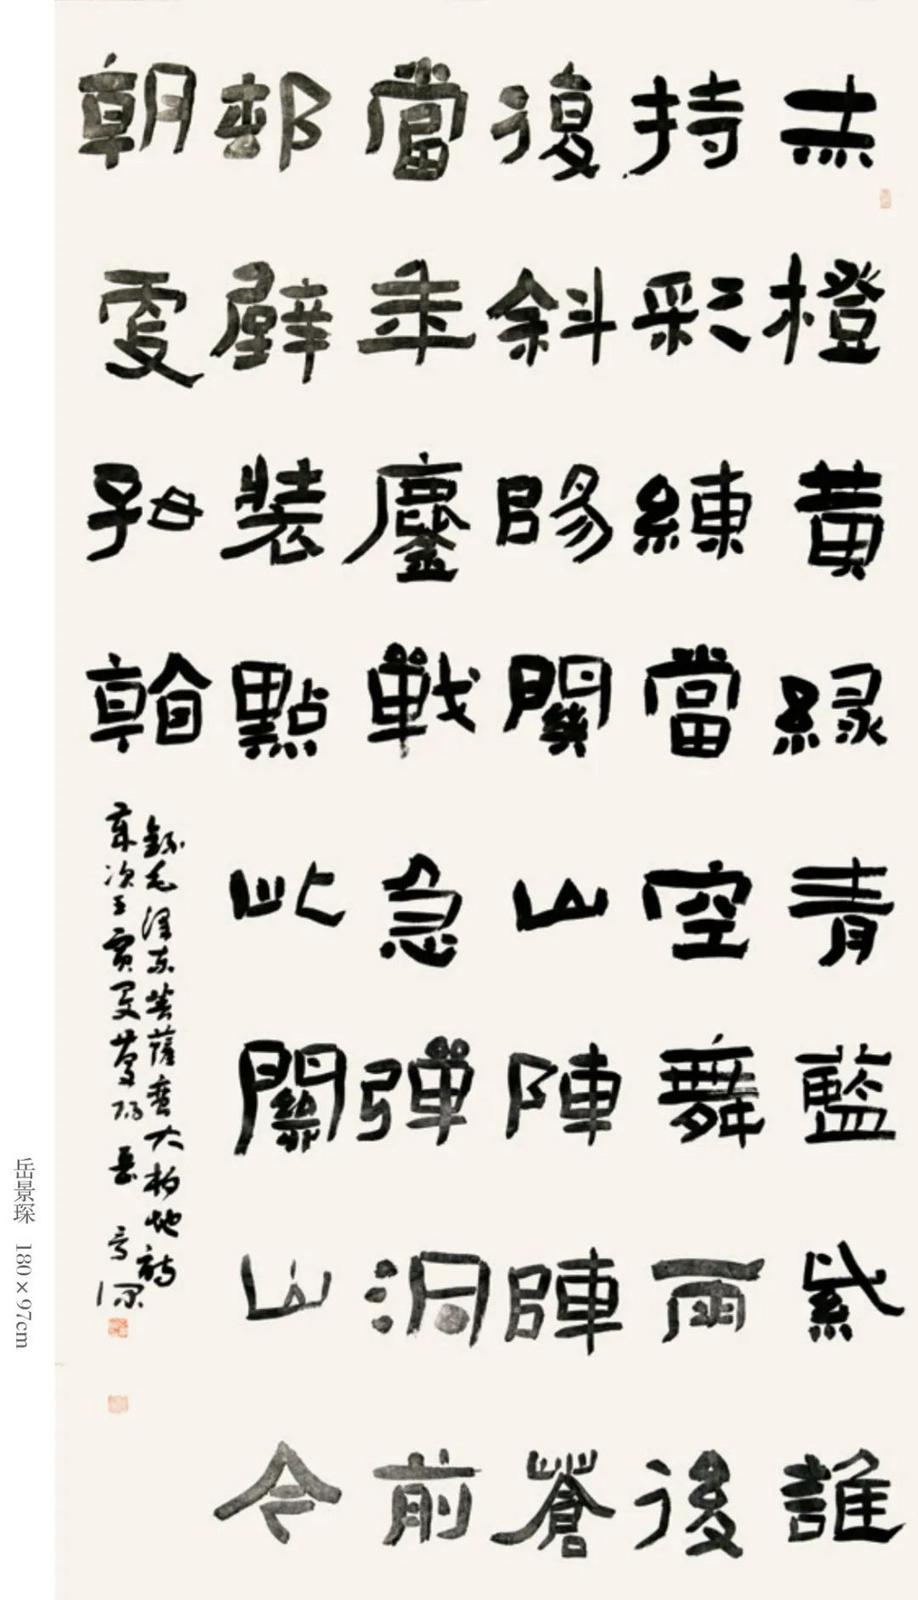 赤橙黄緑青藍紫誰
持彩練當空舞雨後
復斜陽關山陣陣蒼
當年鏖戰急彈洞前
邨壁裝點此關山今
朝更好看
錄毛澤東菩薩蠻大柏地詞
歲次壬寅夏 岳景琛
岳景琛 180×97cm